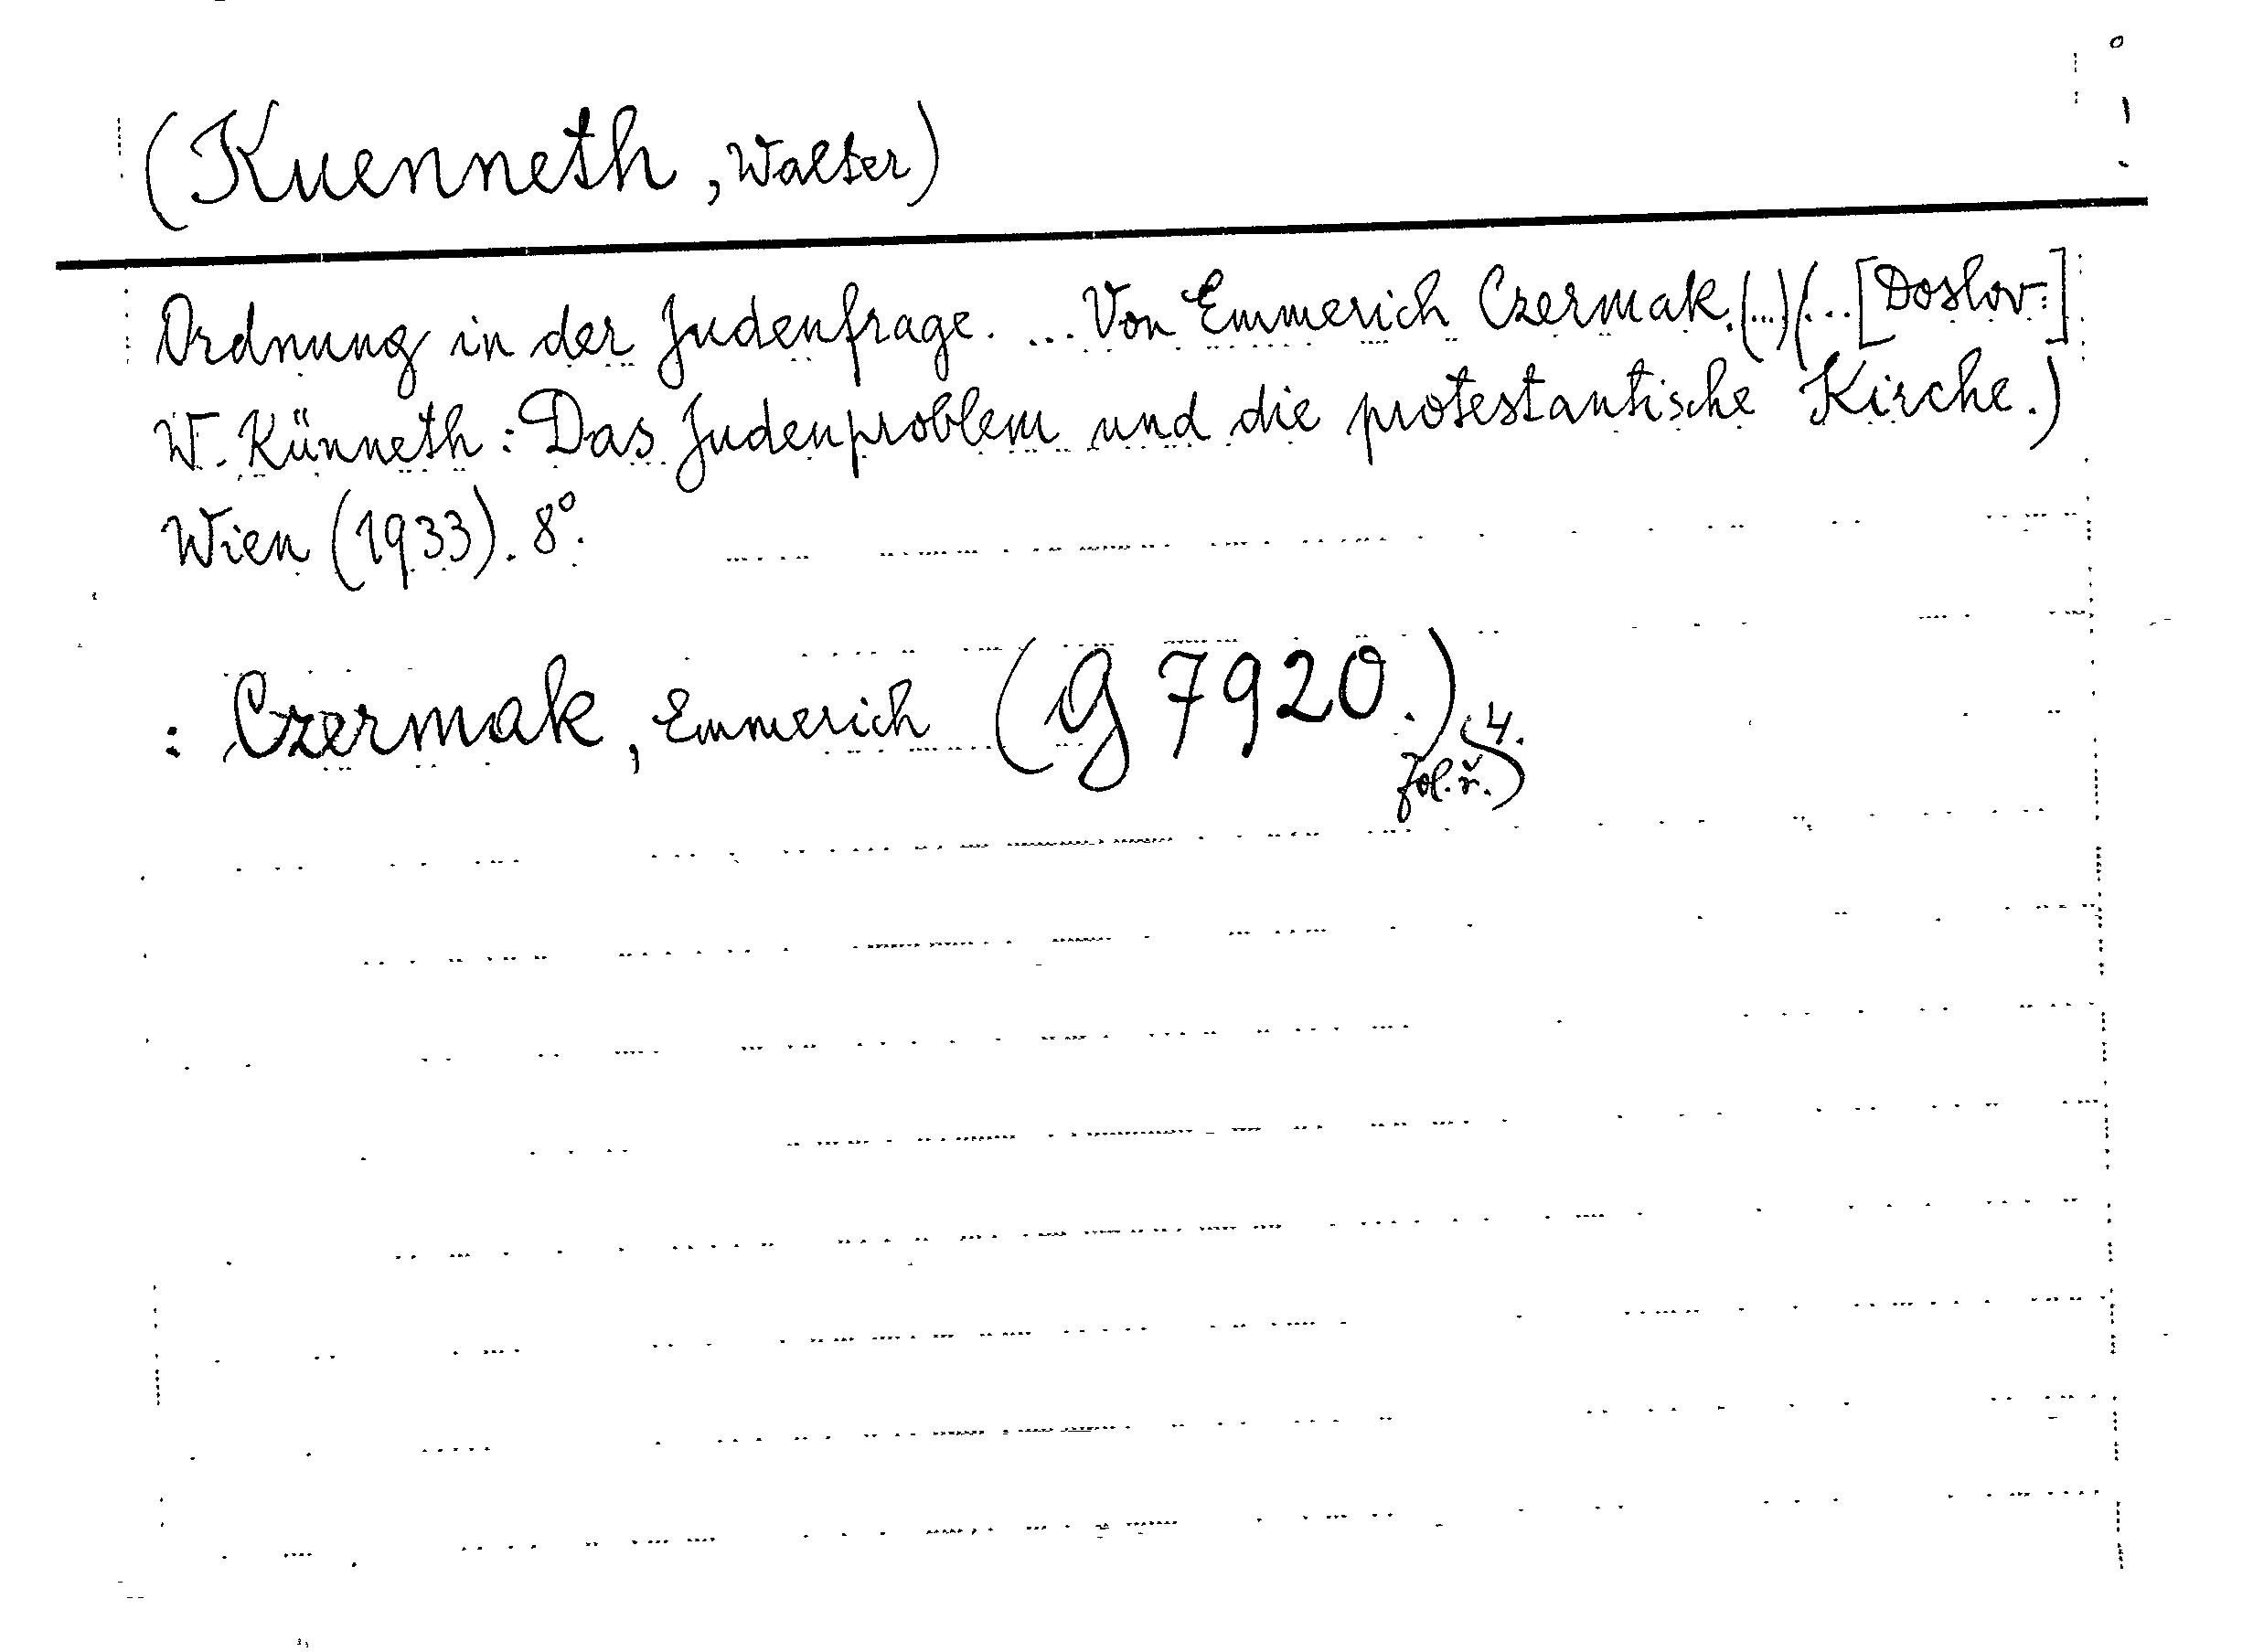 (Kuenneth, Walter)
Ordnung in der Judenfrage. ... Von Emmerich Czermak. (...) (... [Doslov:]
W. Künneth: Das Judenproblem und die protestantische Kirche.)
Wien (1933). 8°.
: Czermak, Emmerich (G 7920.) 4.
fol. ř.)